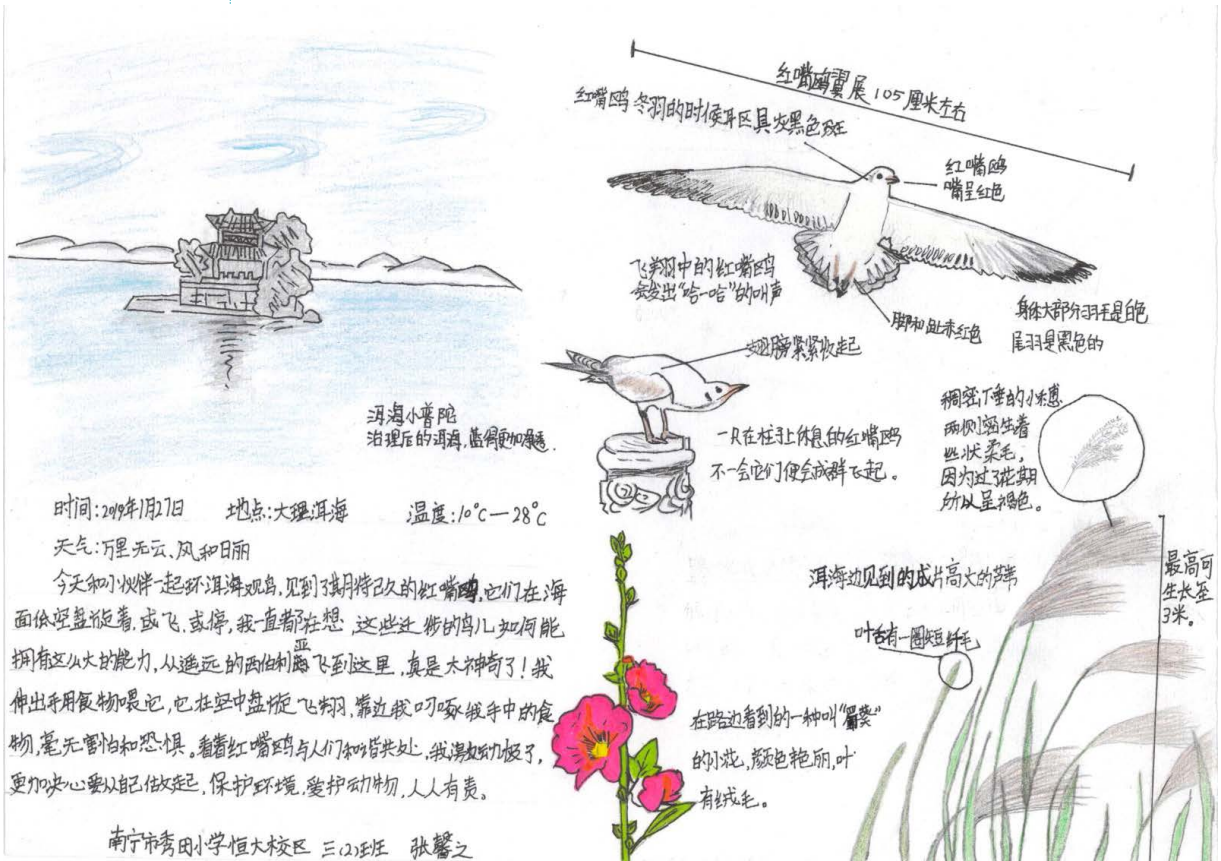 红嘴鸥翼展105厘米左右
红嘴鸥冬羽的时候耳区具灰黑色斑
红嘴鸥
嘴呈红色
飞翔中的红嘴鸥
会发出“哈—哈”的叫声
脚和趾赤红色
身体大部分羽毛是白色
尾羽是黑色的
翅膀紧紧收起
一只在柱子上休息的红嘴鸥
不一会它们便会成群飞起。
洱海小普陀
治理后的洱海,蓝得更加深邃.
稠密下垂的小穗
两侧密生着
丝状柔毛,
因为过了花期
所以呈褐色。
时间:2019年1月27日 地点:大理洱海 温度:10℃—28℃
天气:万里无云、风和日丽
今天和小伙伴一起环洱海观鸟,见到了期待已久的红嘴鸥,它们在海
面低空盘旋着,或飞,或停,我一直都在想,这些迁徙的鸟儿如何能
拥有这么大的能力,从遥远的西伯利亚飞到这里,真是太神奇了!我
伸出手用食物喂它,它在空中盘旋飞翔,靠近我叼啄我手中的食
物,毫无害怕和恐惧。看着红嘴鸥与人们和谐共处,我激动极了,
更加决心要从自己做起,保护环境,爱护动物,人人有责。
南宁市秀田小学恒大校区 三(2)班 张馨之
洱海边见到的成片高大的芦苇
最高可
生长至
3米。
叶舌有一圈短纤毛
在路边看到的一种叫“蜀葵”
的小花,颜色艳丽,叶
有绒毛。